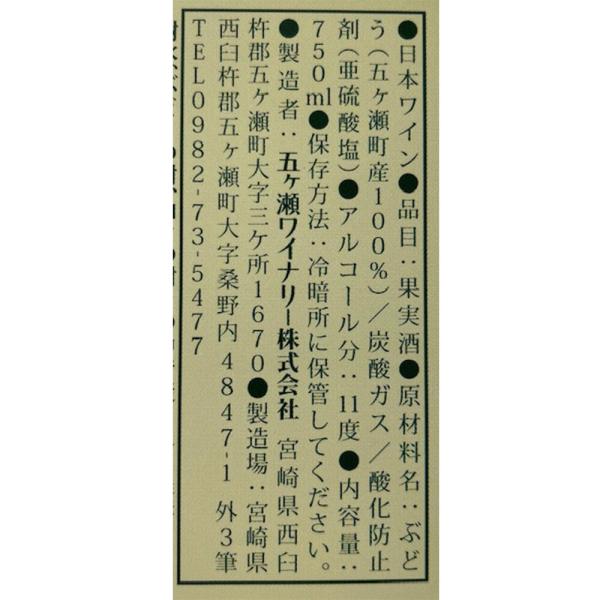 ●日本ワイン●品目：果実酒●原材料名：ぶど
う（五ヶ瀬町産100%）／炭酸ガス／酸化防止
剤（亜硫酸塩）●アルコール分：11度●内容量：
750ml●保存方法：冷暗所に保管してください。
●製造者：五ヶ瀬ワイナリー株式会社 宮崎県西臼
杵郡五ヶ瀬町大字三ケ所1670●製造場：宮崎県
西臼杵郡五ヶ瀬町大字桑野内4847-1 外3筆
TEL0982-73-5477